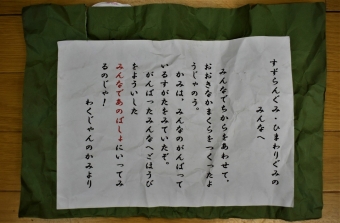 すずらんぐみ・ひまわりぐみの
みんなへ
みんなでちからをあわせて、
おおきなかまくらをつくったよ
うじゃのう。
かみは、みんなのがんばって
いるすがたをみていたぞ。
がんばったみんなへごほうび
をよういした
みんなであのばしょにいってみ
るのじゃ！
わくしゃんのかみより